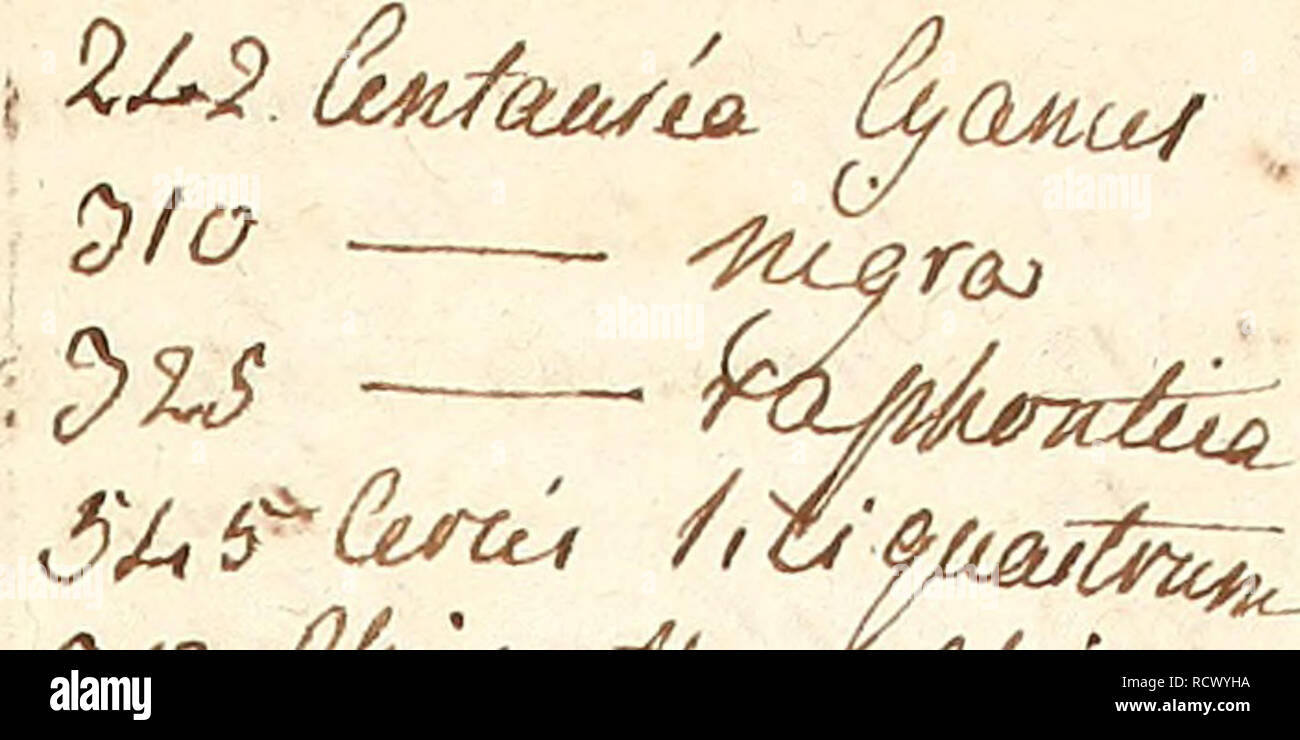 242. Centaurea Cyanus
310 — nigra
325 — raphontica
545 Cercis siliquastrum
alamy
Image ID: RCWYHA
www.alamy.com